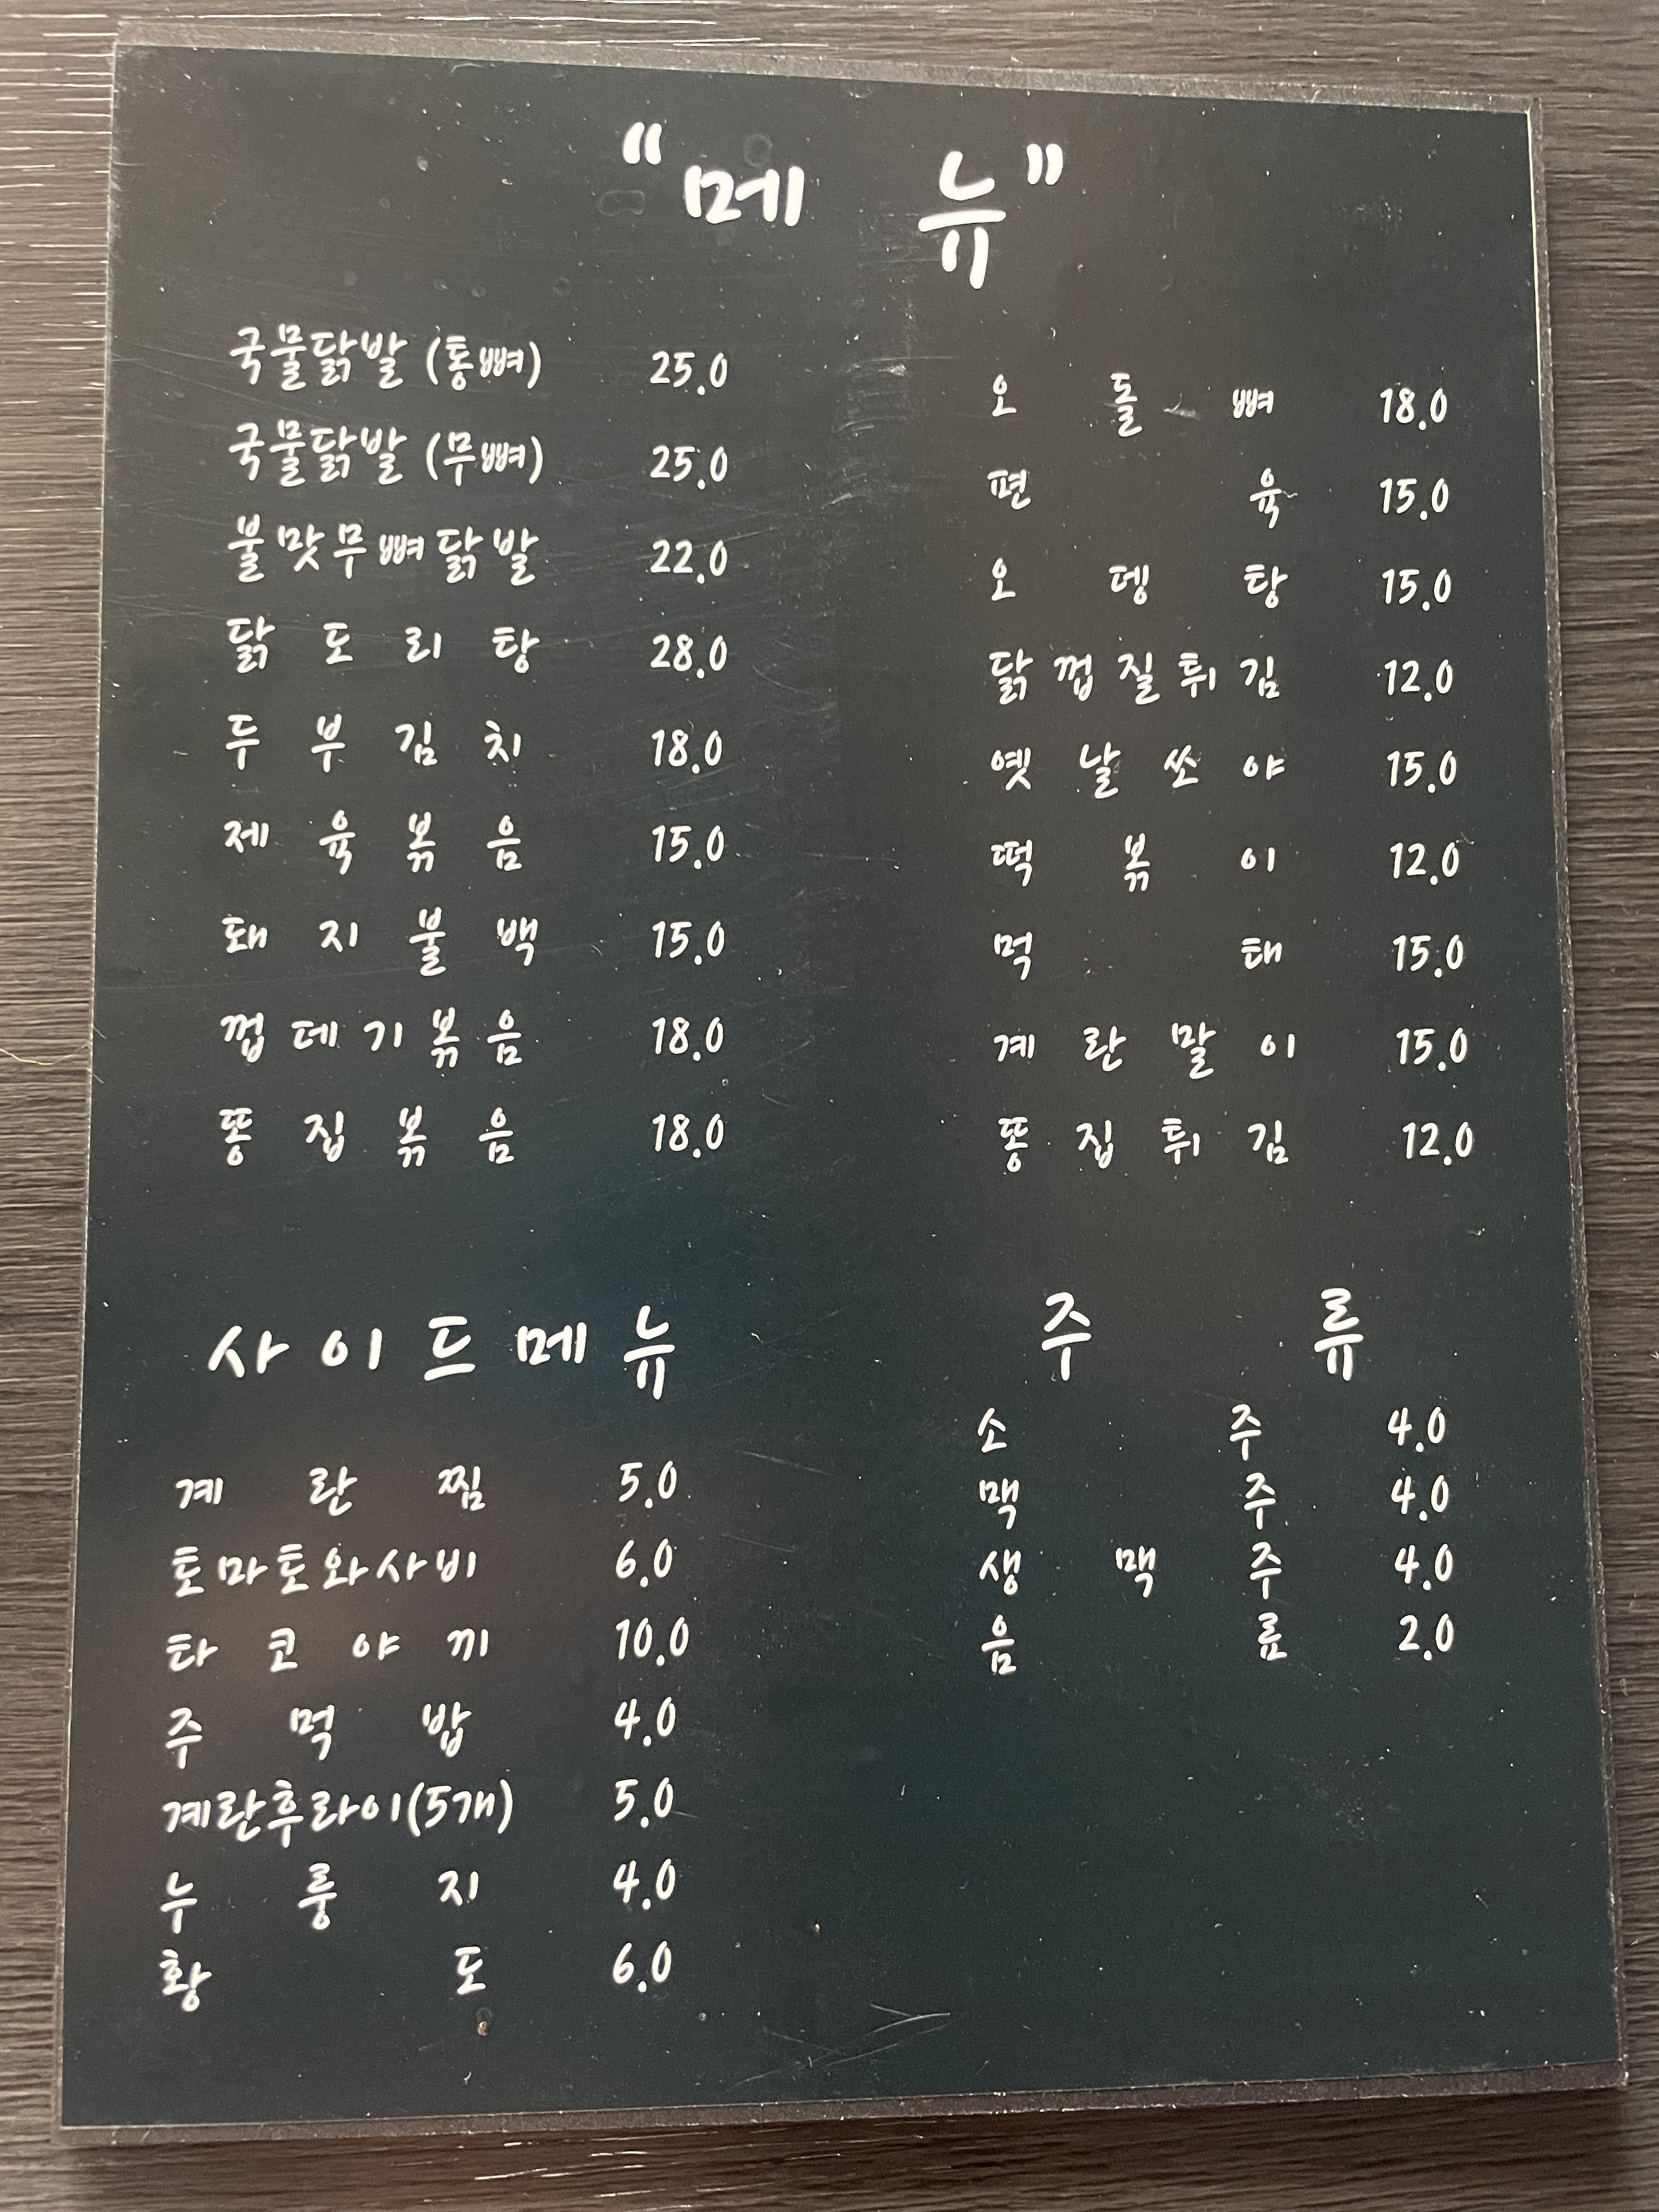 "메 뉴"
국물닭발 (통뼈) 25.0
국물닭발 (무뼈) 25.0
불맛무뼈닭발 22.0
닭도리탕 28.0
두부김치 18.0
제육볶음 15.0
돼지불백 15.0
껍데기볶음 18.0
똥집볶음 18.0
오돌뼈 18.0
편육 15.0
오뎅탕 15.0
닭껍질튀김 12.0
옛날쏘야 15.0
떡볶이 12.0
먹태 15.0
계란말이 15.0
똥집튀김 12.0
사이드메뉴
계란찜 5.0
토마토와사비 6.0
타코야끼 10.0
주먹밥 4.0
계란후라이(5개) 5.0
누룽지 4.0
황도 6.0
주류
소주 4.0
맥주 4.0
생맥주 4.0
음료 2.0